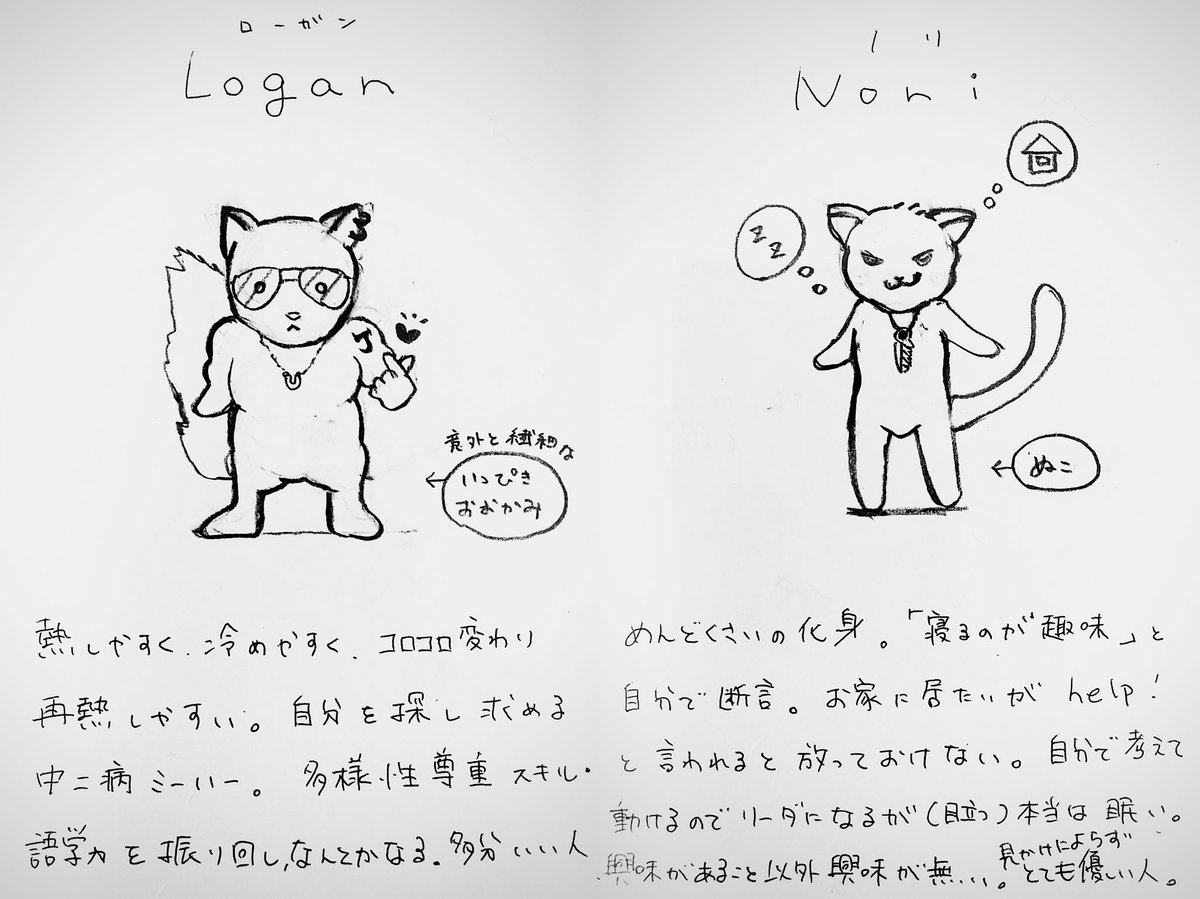 ローガン
Logan
意外と繊細な
いっぴき
おおかみ
熱しやすく、冷めやすく、コロコロ変わり
再熱しやすい。自分を探し求める
中二病ミーハー。多様性尊重スキル・
語学力を振り回し、なんとかなる。多分いい人
ノリ
Nori
zz
ぬこ
めんどくさいの化身。「寝るのが趣味」と
自分で断言。お家に居たいが help!
と言われると放っておけない。自分で考えて
動けるのでリーダになるが(目立つ)本当は眠い。
興味があること以外興味が無い、。見かけによらずとても優しい人。